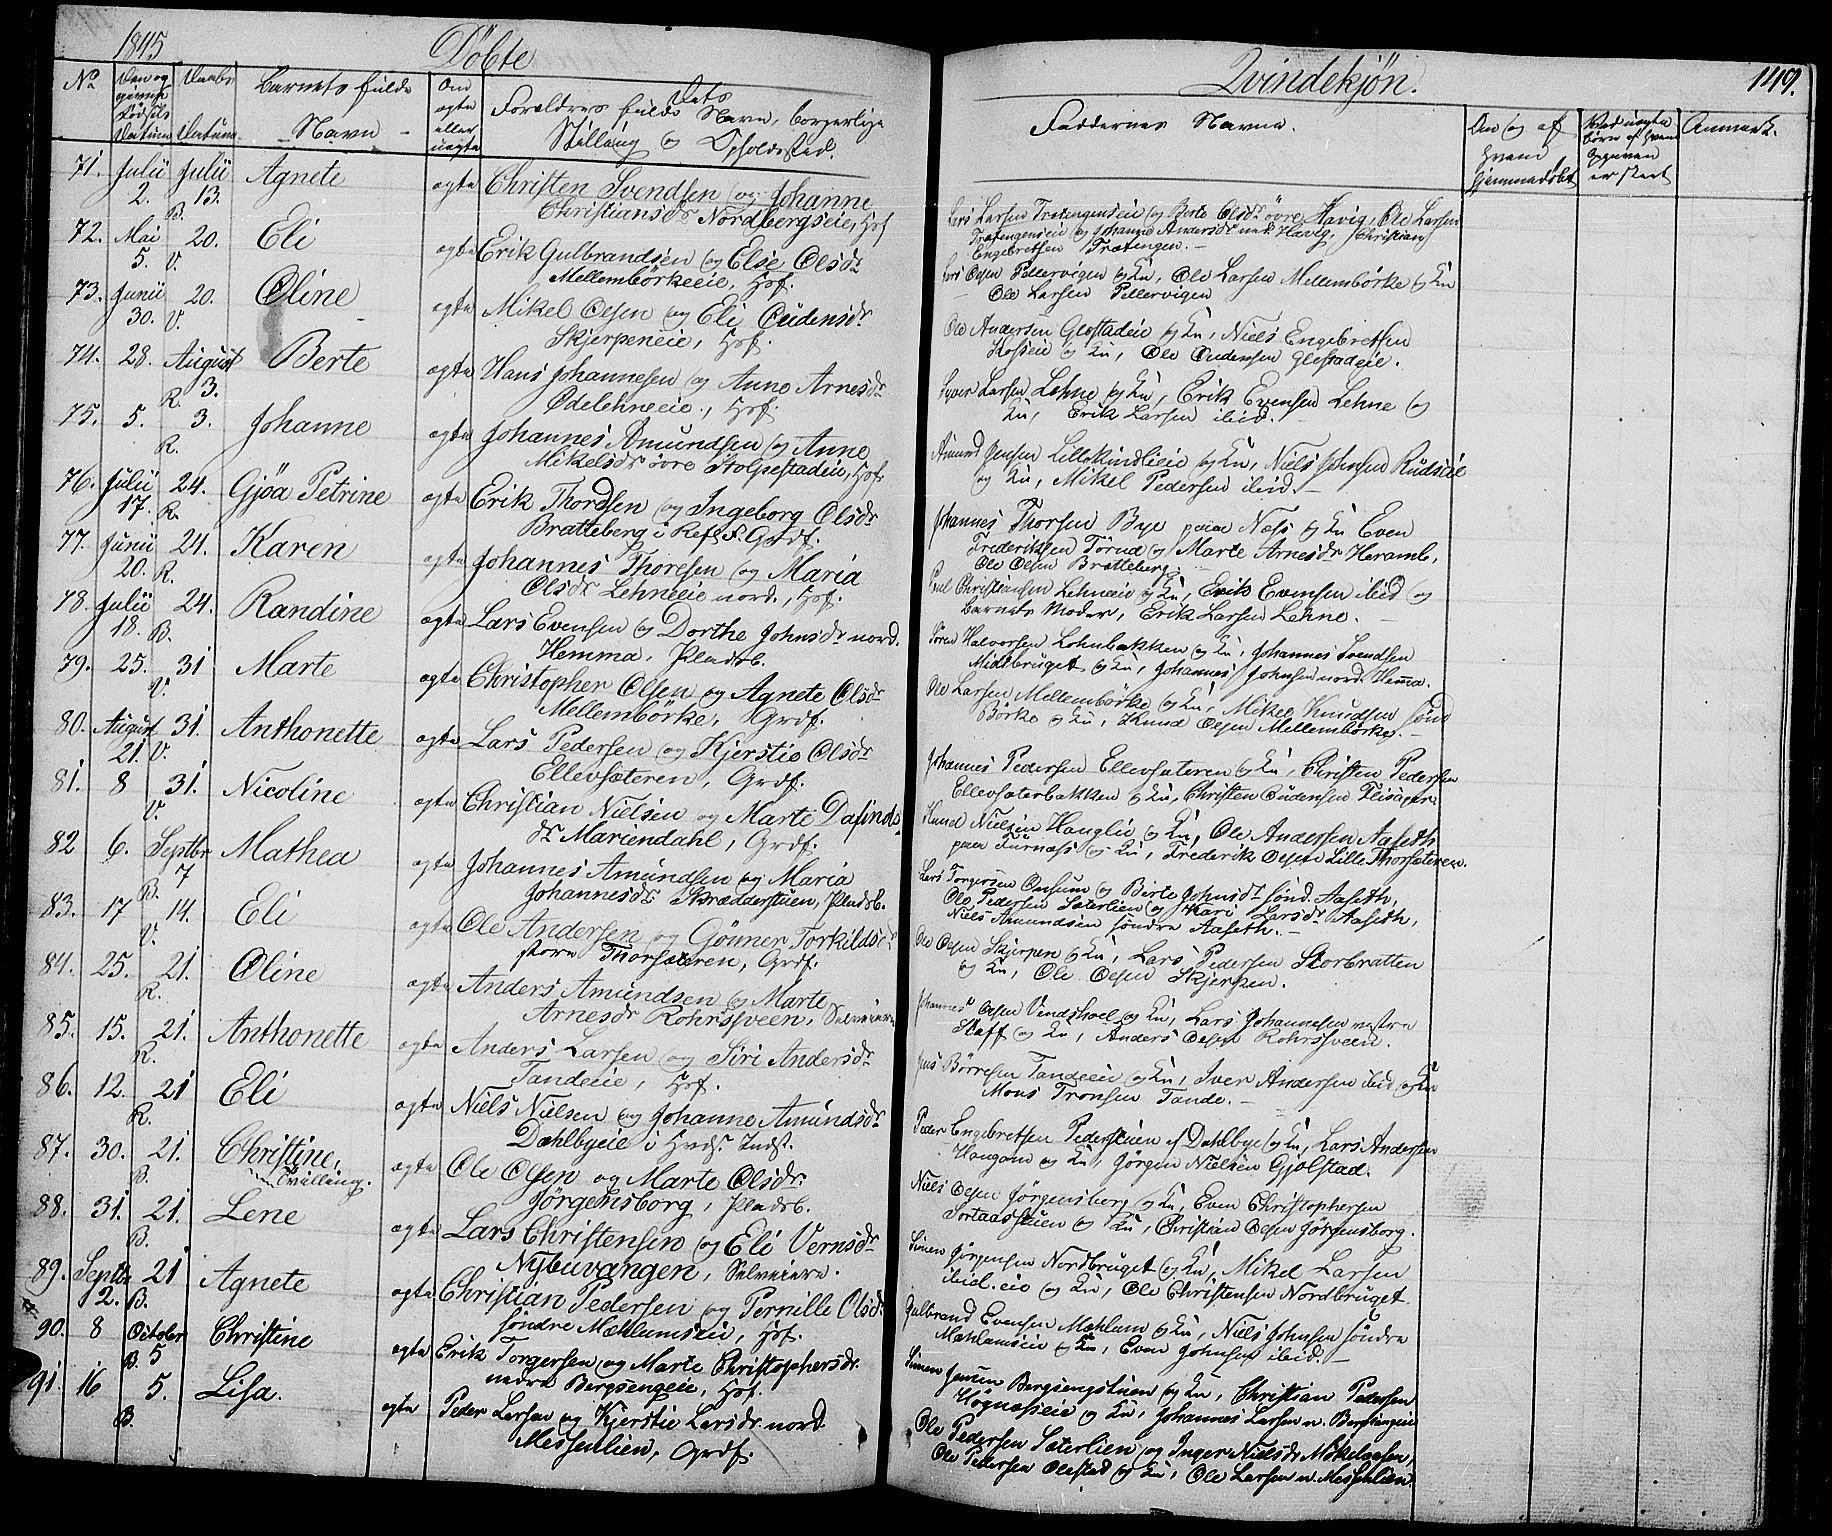 1845 Döbte Qvindekjön. 149.
No Den og givne Födsels Datum Daabs Datum Barnets fulde Navn Om ægte eller uægte Forældres fulde Navn, borgerlige Stilling og Opholdssted. Faddernes Navne. Om og af hvem hjemmedöbt Anmærk.
71. Julii 2. Julii 13. B. Agnete ægte Christen Svendsen og Johanne
Christiansdr Nordbergseie, Hof
Lars Larsen Trætengenseie og Berte Olsdr övre Havig, Ole Larsen
Trætengenseie og Johanne Andersdr Havig, Christian
Engebretsen Trætengen. -
72. Mai 5. 20. V. Eli ægte Erik Gulbrandsen og Else Olsdr
Mellembörkeeie, Hof.
Lars Olsen Pellervigen og Ku, Ole Larsen Mellembörke og Ku
Ole Larsen Pellervigen
73. Junii 30. 20. V. Oline ægte Mikel Olsen og Eli Oudensdr
Skjerpeneie, Hof.
Ole Andersen Glostadeie og Ku, Niels Engebretsen
Kosseie og Ku, Ole Oudensen Glostadeie.
74. 28. August 3. R. Berte ægte Hans Johannesen og Anne Arnesdr
Ödelehneeie, Hof.
Syver Larsen Lehne og Ku, Erik Evensen Lehne og
Ku, Erik Larsen ibid. -
75. 5. 3. R. Johanne ægte Johannes Amundsen og Anne
Mikelsdr övre Stolpestadeie, Hof
Amund Jensen Lillekindlieie og Ku, Niels Johnsen Rudseie
og Ku, Mikel Pedersen ibid. -
76. Julii 17. 24. R. Gjöa Petrine ægte Erik Thordsen og Ingeborg Olsdr
Bratteberg i Refs. F. Grdf.
Johannes Thorsen Bye paa Næs og Ku Even
Frederiksen Törud og Marte Arnesdr Heramb,
Ole Olsen Bratteberg.
77. Junii 20. 24. R. Karen ægte Johannes Thoresen og Maria
Olsdr Lehneeie nord., Hof.
Poul Christiansen Lehneeie og Ku, Erik Evensen ibid og
Barnets Moder, Erik Larsen Lehne.
78. Julii 18. 24. B. Randine ægte Lars Evensen og Dorthe Johnsdr nord.
Hemma, Pladsb.
Sören Halvorsen Lohnbakken og Ku, Johannes Svendsen
Midtbruget og Ku, Johannes Johnsen nord. Hemma.
79. 25. 31 V. Marte ægte Christopher Olsen og Agnete Olsdr
Mellembörke, Grdf.
Ole Larsen Mellembörke og Ku, Mikel Knudsen sönd
Börke og Ku, Knud Olsen Mellembörke. -
80. August 21. 31. V. Anthonette ægte Lars Pedersen og Kjerstie Olsdr
Ellevsæteren, Grdf.
Johannes Pedersen Ellevsæteren og Ku, Christen Pedersen
Ellevsæterbakken og Ku, Christen Oudensen Flisager
81. 8 31. V. Nicoline ægte Christian Nielsen og Marte Dafinds-
dr Mariendahl, Grdf.
Knud Nielsen Hanglie og Ku, Ole Andersen Aaseth
paa Furnæss og Ku, Frederik Olsen Lille Thorsæteren.
82 6. Septbr 7 B. Mathea ægte Johannes Amundsen og Maria
Johannesdr Skrædderstuen, Pladsb.
Lars Torgersen Onsum og Berte Johnsdr sönd. Aaseth,
Ole Pedersen Sæterlien og Kari Larsdr Aaseth,
Niels Amundsen söndre Aaseth. -
83. 17 14. V. Eli ægte Ole Andersen og Gönner Torkildsdr
store Thorsæteren, Grdf.
Ole Olsen Skjerpen og Ku, Lars Pedersen Storbratten
og Ku, Ole Olsen Skjerpen.
84. 25. 21. R. Oline ægte Anders Amundsen og Marte
Arnesdr Rohrssveen, Selveiere
Johannes Olsen Vendskoel og Ku, Lars Johannesen vestre
Skaff og Ku, Anders Olsen Rohrssveen.
85. 15. 21. R. Anthonette ægte Anders Larsen og Siri Andersdr
Tandeeie, Hof.
Jens Börresen Tandeeie og Ku, Iver Andersen ibid og Ku
Mons Tronsen Tande. -
86. 12. 21 R. Eli ægte Niels Nielsen og Johanne Amundsdr
Dahlbyeie i Hvds. Indst.
Peder Engebretsen Pederstuen af Dahlbye og Ku, Lars Andersen
Haugom og Ku, Jörgen Nielsen Gjolstad.
87. 30. 21. B. Christine, Tvilling. ægte Ole Olsen og Marte Olsdr.
Jörgensborg, Pladsb.
Niels Olsen Jörgensborg og Ku, Even Christophersen
Sortaasstuen og Ku, Christian Olsen Jörgensborg.
88. 31. 21. B. Lene ægte Lars Christensen og Eli Vernsdr
Nybuvangen, Selveiere.
Simen Jörgensen Nordbruget og Ku, Mikel Larsen
ibid. eie og Ku, Ole Christensen Nordbruget
89. Septbr 2. 21 B. Agnete ægte Christian Pedersen og Pernille Olsdr
söndre Mæhlumseie, Hof.
Gulbrand Evensen Mæhlum og Ku, Niels Johnsen söndre
Mæhlumseie og Ku, Even Johnsen ibid. -
90. 8 October 5 B. Christine ægte Erik Torgersen og Marte Christophersdr.
nedre Bergsengeie, Hof.
Simen Jensen Bergsengstuen og Ku, Christian Pedersen
Högnæsseie og Ku, Johannes Larsen n. Bergsengeie
91. 16 5. B. Lisa. ægte Peder Larsen og Kjerstie Larsdr. nord
Messenlien, Grdf.
Ole Pedersen Sæterlien og Inger Nielsdr Mökelgasen,
Ole Pedersen Olestad og Ku, Ole Larsen n. Messenlien.